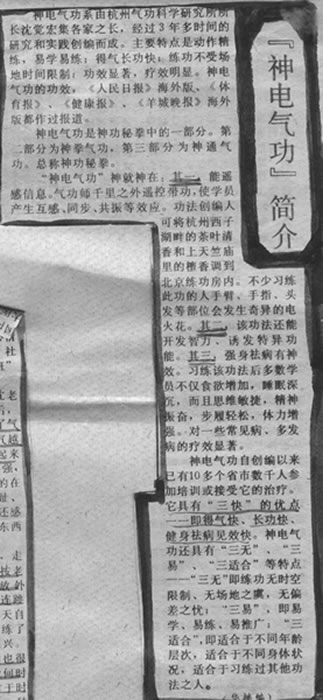 『神电气功』简介
神电气功系由杭州气功科学研究所所
长沈觉宏集各家之长，经过3年多时间的
研究和实践创编而成。主要特点是动作精
练，易学易练；得气长功快；练功不受场
地时间限制；功效显著，疗效明显。神电
气功的功效，《人民日报》海外版、《体
育报》、《健康报》、《羊城晚报》海外
版都作过报道。
神电气功是神功秘拳中的一部分。第
二部分为神拳气功，第三部分为神通气
功。总称神功秘拳。
“神电气功”神就神在：其一，能遥
感信息。气功师千里之外遥控带功，使学员
产生互感、同步、共振等效应。功法创编人
可将杭州西子
湖畔的茶叶清
香和上天竺庙
里的檀香调到
北京练功房内。不少习练
此功的人手臂、手指、头
发等部位会发生奇异的电
火花。其二，该功法还能
开发智力、诱发特异功
能。其三，强身祛病有神
效。习练该功法后多数学
员不仅食欲增加，睡眠深
沉，而且思维敏捷，精神
振奋，步履轻松，体力增
强。对一些常见病、多发
病的疗效显著。
神电气功自创编以来
已有10多个省市数千人参
加培训或接受它的治疗。
它具有“三快”的优点
——即得气快、长功快、
健身祛病见效快。神电气
功还具有“三无”、“三
易”、“三适合”等特点
——“三无”即练功无时空
限制、无场地之虞，无偏
差之忧；“三易”，即易
学、易练、易推广；“三
适合”，即适合于不同年龄
层次，适合于不同身体状
况，适合于习练过其他功
法之人。